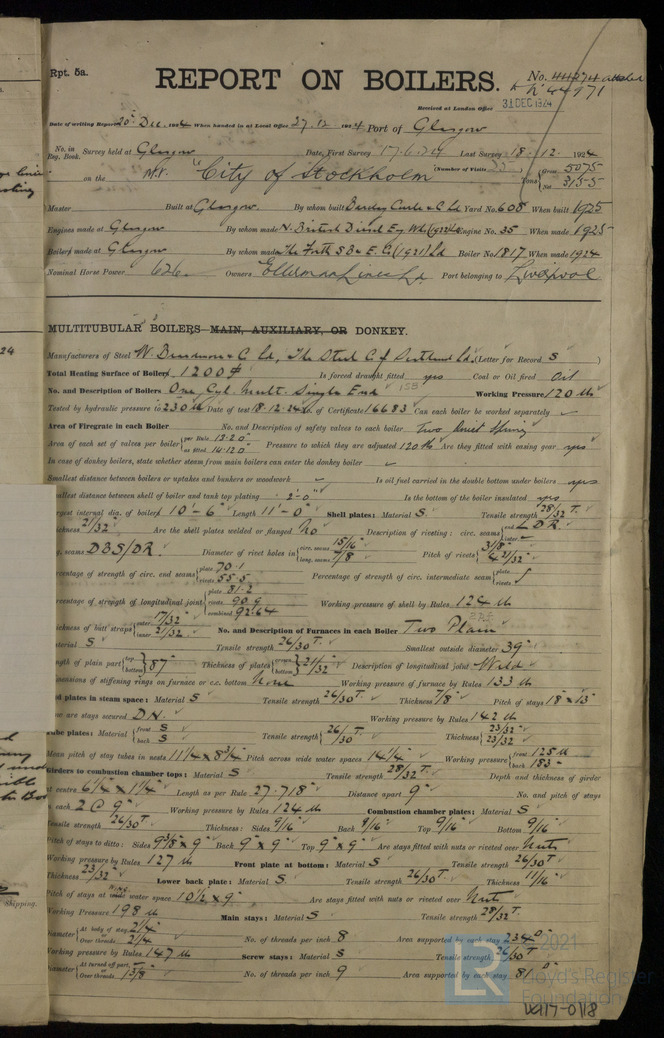 Rpt. 5a.
REPORT ON BOILERS.
No. 44274
44771
Received at London Office 31 DEC 1924
Date of writing Report 20th Dec. 1924 When handed in at Local Office 27.12.1924 Port of Glasgow
No. in Reg. Book. Survey held at Glasgow Date, First Survey 17.6.24 Last Survey 18.12.1924
on the M.V. "City of Stockholm" (Number of Visits) Tons {Gross 5075 Net 3155
Master Built at Glasgow. By whom built Barclay Curle & Co Ld Yard No. 608 When built 1925
Engines made at Glasgow By whom made N. British Diesel Eng Wks (1922) Ld Engine No. 35 When made 1925
Boilers made at Glasgow By whom made The Forth S.B. & E. Co (1921) Ld Boiler No. 1817 When made 1924
Nominal Horse Power 626. Owners Ellerman Lines Ld Port belonging to Liverpool
MULTITUBULAR BOILERS MAIN, AUXILIARY, OR DONKEY.
Manufacturers of Steel The Steel Co of Scotland Ld. (Letter for Record S )
Total Heating Surface of Boilers 1200 Is forced draught fitted yes Coal or Oil fired Oil
No. and Description of Boilers One Cyl. Mult. Single End Working Pressure 120 lb
Tested by hydraulic pressure to 230 lb Date of test 18.12.24 No. of Certificate 16683 Can each boiler be worked separately
Area of Firegrate in each Boiler No. and Description of safety valves to each boiler Two Direct Spring
Area of each set of valves per boiler {per Rule 13.20 as fitted 14.120 Pressure to which they are adjusted 120 lb Are they fitted with easing gear yes
In case of donkey boilers, state whether steam from main boilers can enter the donkey boiler
Smallest distance between boilers or uptakes and bunkers or woodwork Is oil fuel carried in the double bottom under boilers yes
allest distance between shell of boiler and tank top plating 2'-0" Is the bottom of the boiler insulated yes
rgest internal dia. of boilers 10'-6" Length 11'-0" Shell plates: Material S Tensile strength 28/32 T.
ickness 21/32" Are the shell plates welded or flanged No Description of riveting: circ. seams {end L.D.R. inter
g. seams DBS/DR. Diameter of rivet holes in {circ. seams 15/16" long. seams 7/8 Pitch of rivets {3 1/8" 4 21/32"
rcentage of strength of circ. end seams {plate 70.1 rivets 55.5 Percentage of strength of circ. intermediate seam {plate rivets
rcentage of strength of longitudinal joint {plate 81.2 rivets 90.9 combined 92.64 Working pressure of shell by Rules 124 lb
ickness of butt straps {outer 17/32" inner 21/32 No. and Description of Furnaces in each Boiler Two Plain
aterial S Tensile strength 26/30 T. Smallest outside diameter 39"
ngth of plain part {top bottom 87" Thickness of plates {crown bottom 21/32 Description of longitudinal joint Weld
imensions of stiffening rings on furnace or c.c. bottom None Working pressure of furnace by Rules 133 lb
d plates in steam space: Material S Tensile strength 26/30 T. Thickness 7/8" Pitch of stays 18 x 13"
ow are stays secured D.N. Working pressure by Rules 142 lb
ube plates: Material {front S back S Tensile strength {26/30 T. Thickness {23/32" 23/32
Mean pitch of stay tubes in nests 11 1/4 x 8 3/4 Pitch across wide water spaces 14 1/4" Working pressure {front 125 lb back 183
Girders to combustion chamber tops: Material S Tensile strength 28/32 T. Depth and thickness of girder
at centre 6 1/4 x 1 1/4" Length as per Rule 27.718" Distance apart 9" No. and pitch of stays
n each 2 @ 9" Working pressure by Rules 124 lb Combustion chamber plates: Material S
Tensile strength 26/30 T. Thickness: Sides 9/16" Back 9/16" Top 9/16" Bottom 9/16"
Pitch of stays to ditto: Sides 9 3/8 x 9" Back 9" x 9" Top 9" x 9" Are stays fitted with nuts or riveted over Nuts
Working pressure by Rules 127 lb Front plate at bottom: Material S Tensile strength 26/30 T
Thickness 23/32" Lower back plate: Material S. Tensile strength 26/30 T Thickness 11/16"
Pitch of stays at wide water space 10 1/2 x 9" Are stays fitted with nuts or riveted over Nuts
Working Pressure 198 lb Main stays: Material S Tensile strength 28/32 T.
Diameter {At body of stay, 2 1/4" Over threads 2 1/4" No. of threads per inch 8 Area supported by each stay 234
Working pressure by Rules 147 lb Screw stays: Material S Tensile strength 26/30 T
Diameter {At turned off part, Over threads 1 3/8" No. of threads per inch 9 Area supported by each stay 81
LR
© 2021
Lloyd's Register
Foundation
W417-0118
24
Shipping.